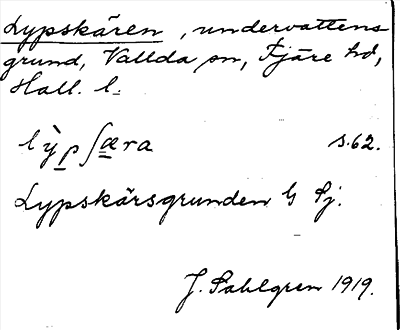 Lypskären, undervattens-
grund, Vallda sn, Fjäre hd,
Hall. l.
lỳpʃæra s.62.
Lypskärsgrunden G Sj.
J. Sahlgren 1919.